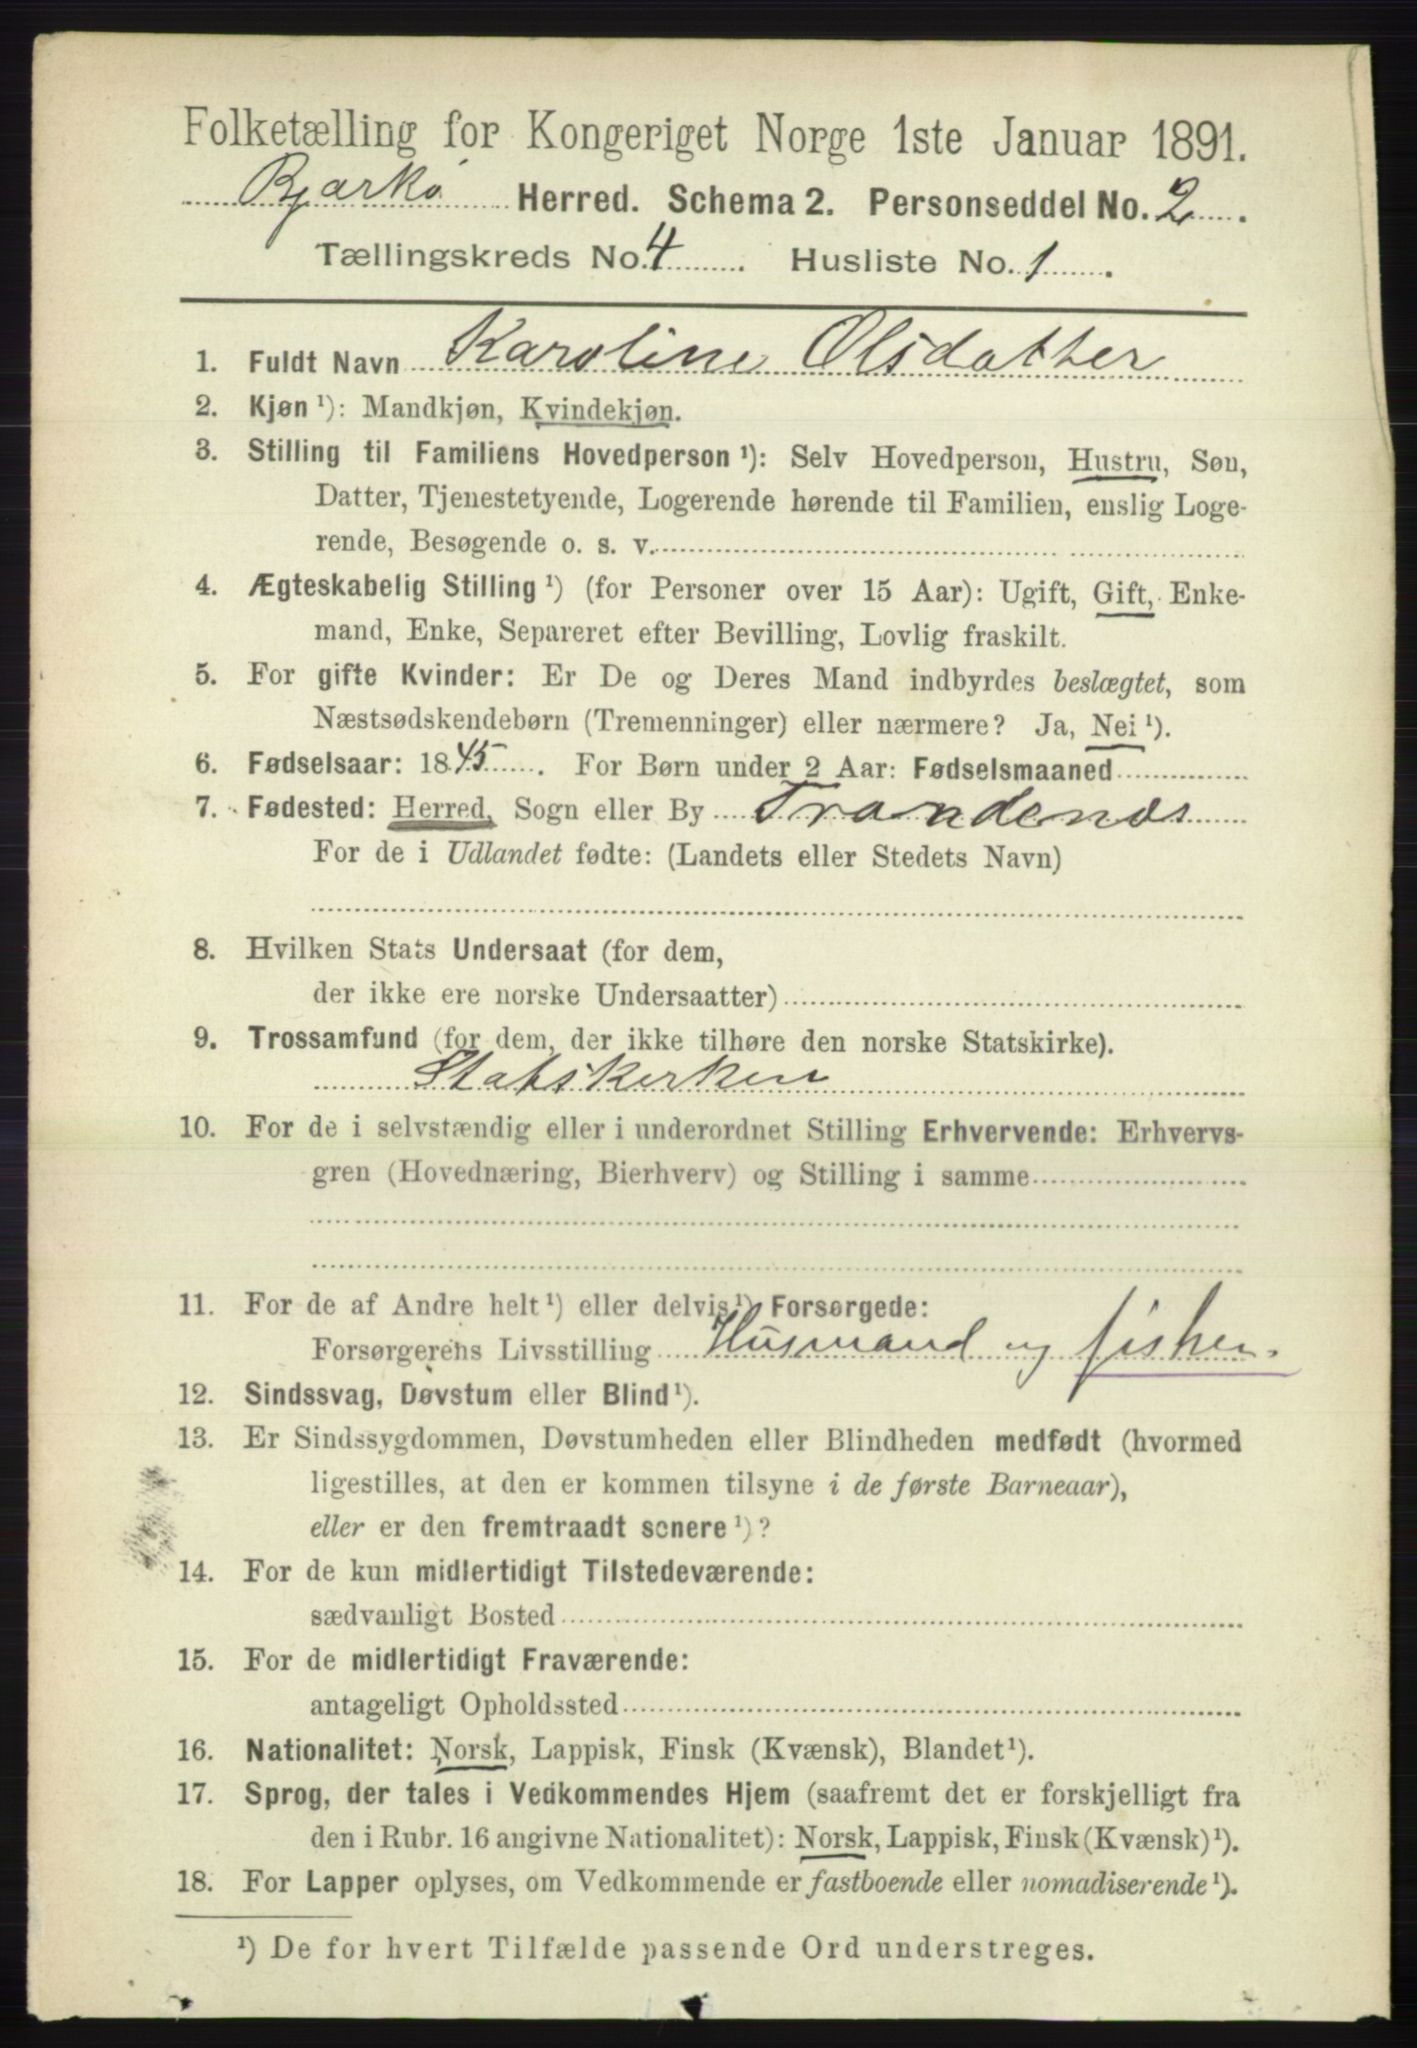 Folketælling for Kongeriget Norge 1ste Januar 1891.
Bjarkø Herred. Schema 2. Personseddel No. 2.
Tællingskreds No. 4. Husliste No. 1.
1. Fuldt Navn Karoline Olsdatter
2. Kjøn ¹): Mandkjøn, Kvindekjøn.
3. Stilling til Familiens Hovedperson ¹): Selv Hovedperson, Hustru, Søn,
Datter, Tjenestetyende, Logerende hørende til Familien, enslig Loge-
rende, Besøgende o. s. v.
4. Ægteskabelig Stilling ¹) (for Personer over 15 Aar): Ugift, Gift, Enke-
mand, Enke, Separeret efter Bevilling, Lovlig fraskilt.
5. For gifte Kvinder: Er De og Deres Mand indbyrdes beslægtet, som
Næstsødskendebørn (Tremenninger) eller nærmere? Ja, Nei ¹).
6. Fødselsaar: 1845. For Børn under 2 Aar: Fødselsmaaned
7. Fødested: Herred, Sogn eller By Trondenæs
For de i Udlandet fødte: (Landets eller Stedets Navn)
8. Hvilken Stats Undersaat (for dem,
der ikke ere norske Undersaatter)
9. Trossamfund (for dem, der ikke tilhøre den norske Statskirke).
Statskerken
10. For de i selvstændig eller i underordnet Stilling Erhvervende: Erhvervs-
gren (Hovednæring, Bierhverv) og Stilling i samme
11. For de af Andre helt ¹) eller delvis ¹) Forsørgede:
Forsørgerens Livsstilling Husmand og fisker.
12. Sindssvag, Døvstum eller Blind ¹).
13. Er Sindssygdommen, Døvstumheden eller Blindheden medfødt (hvormed
ligestilles, at den er kommen tilsyne i de første Barneaar),
eller er den fremtraadt senere ¹)?
14. For de kun midlertidigt Tilstedeværende:
sædvanligt Bosted
15. For de midlertidigt Fraværende:
antageligt Opholdssted
16. Nationalitet: Norsk, Lappisk, Finsk (Kvænsk), Blandet ¹).
17. Sprog, der tales i Vedkommendes Hjem (saafremt det er forskjelligt fra
den i Rubr. 16 angivne Nationalitet): Norsk, Lappisk, Finsk (Kvænsk) ¹).
18. For Lapper oplyses, om Vedkommende er fastboende eller nomadiserende ¹).
¹) De for hvert Tilfælde passende Ord understreges.